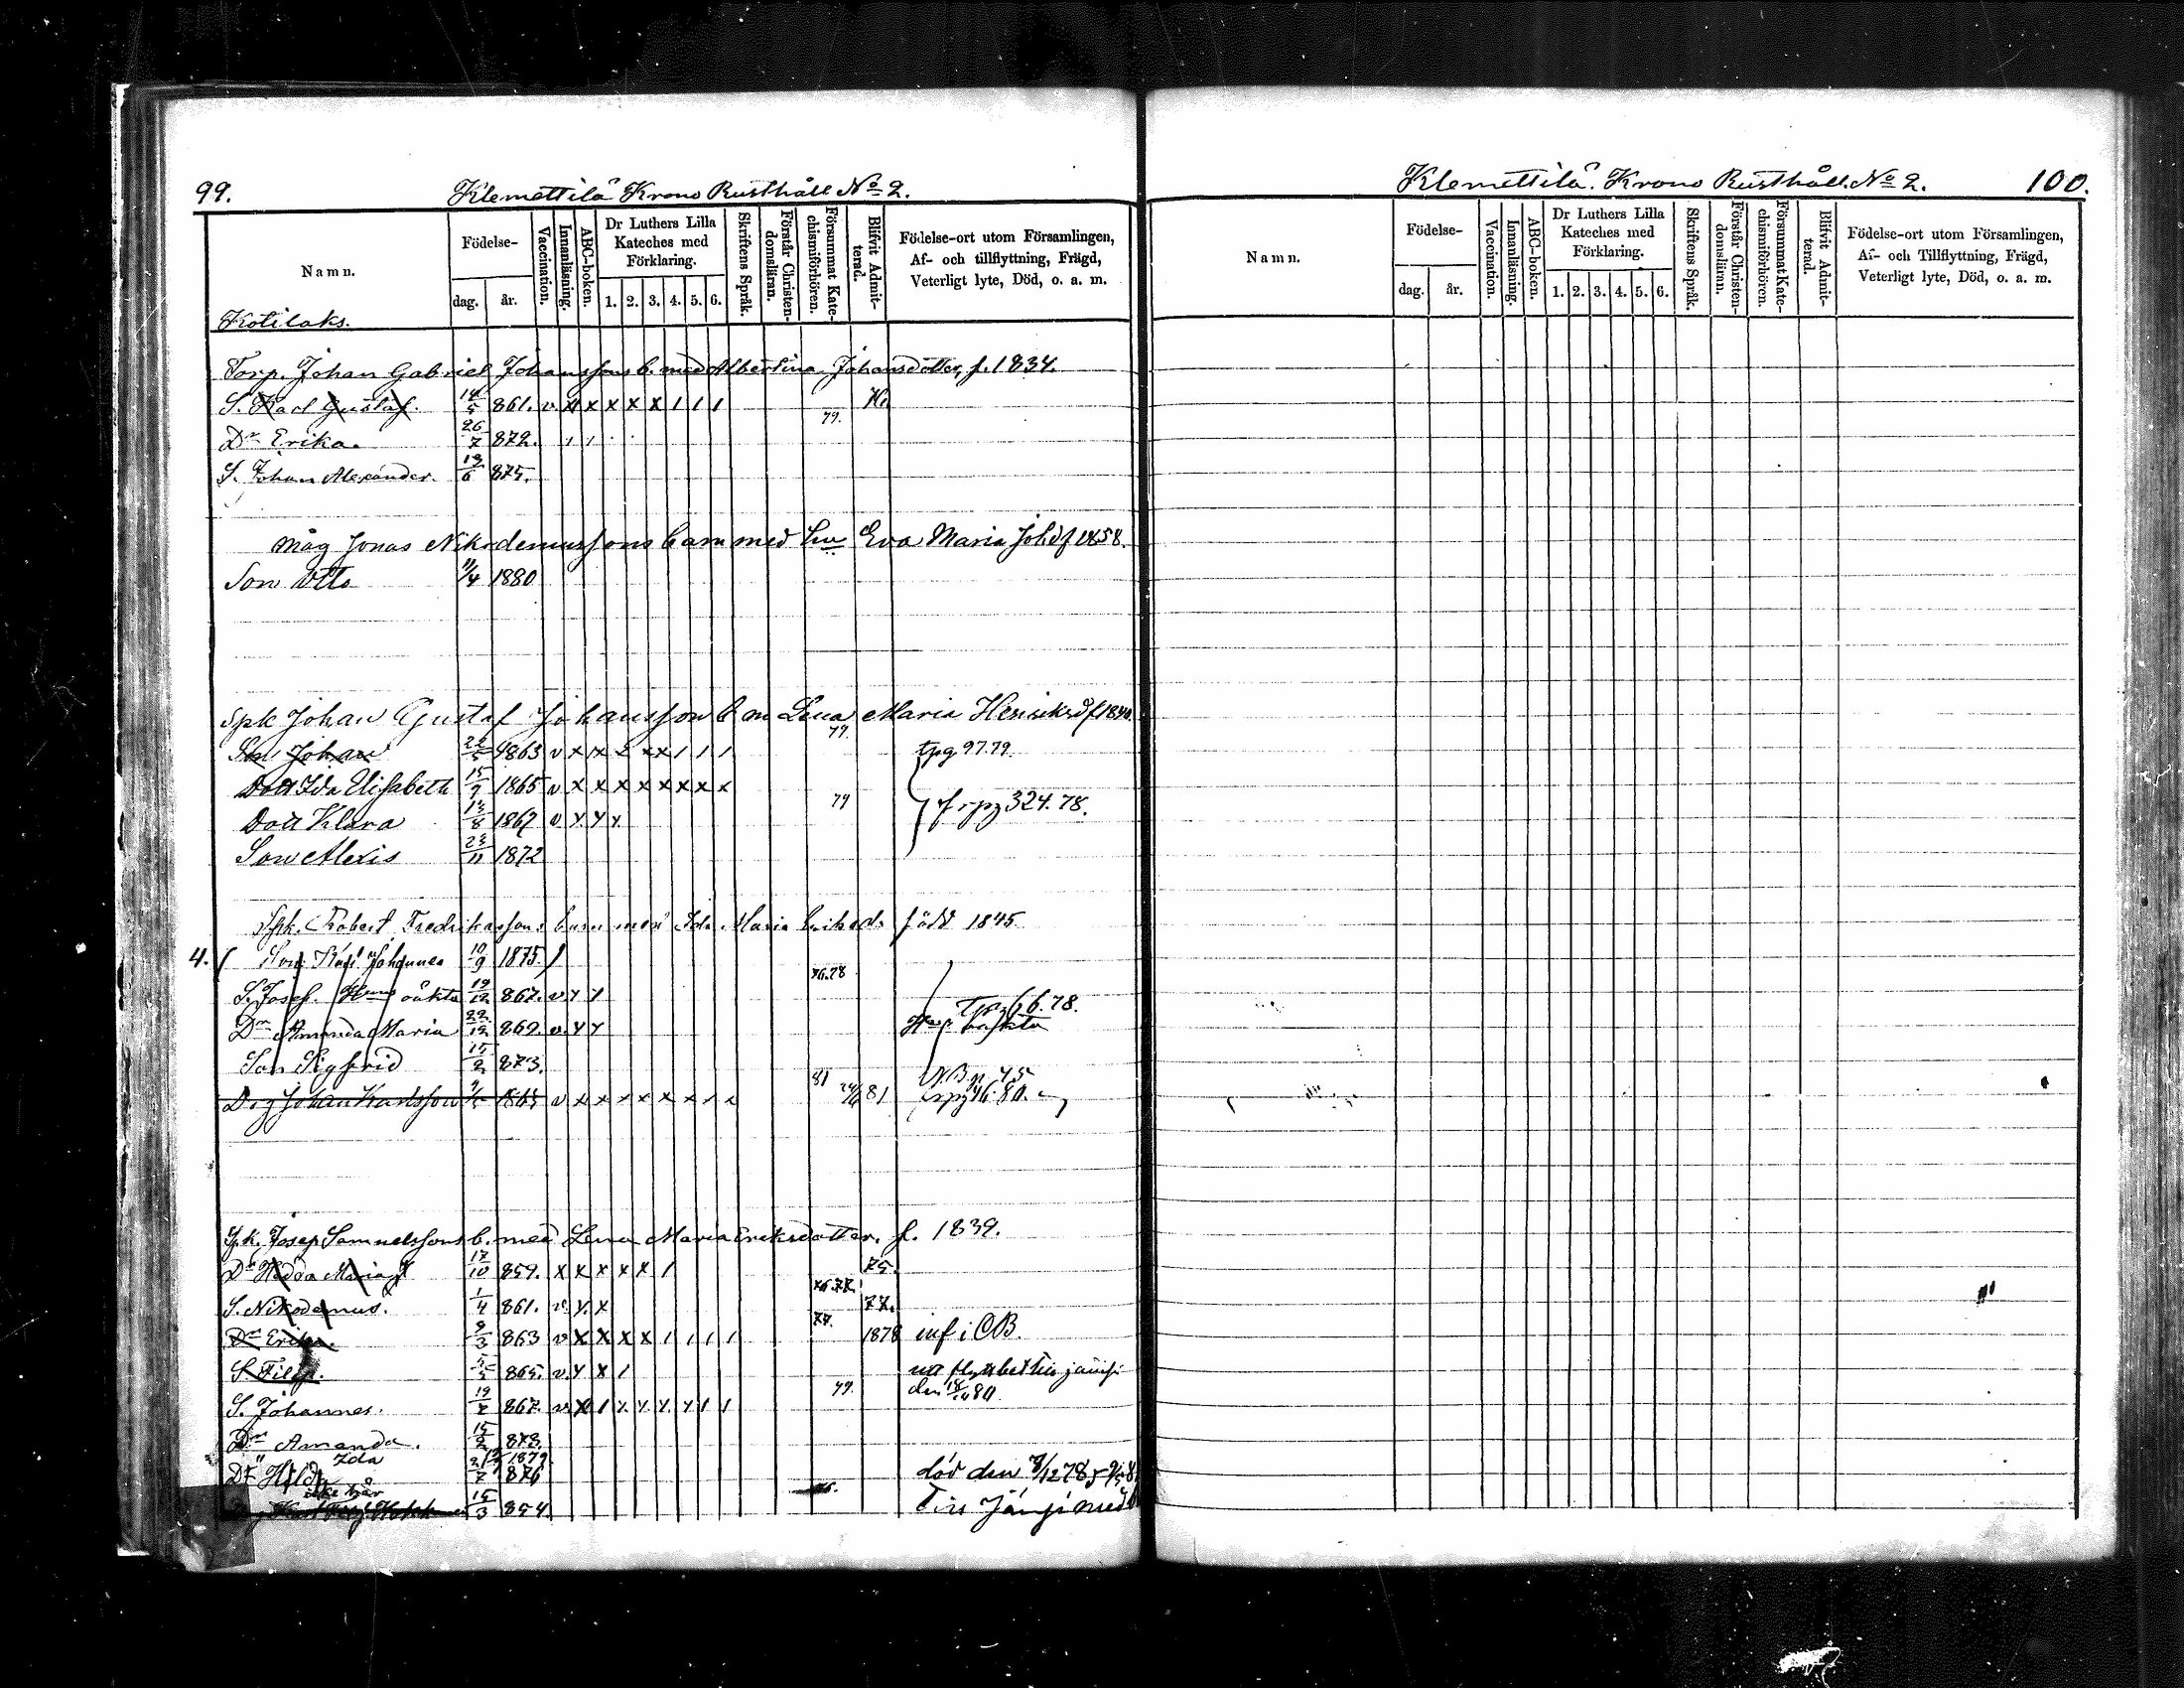 99.
Klemettilä Krono Rusthåll No 2.
Namn.
Födelse-
dag.
år.
Vaccination.
Innanläsning.
ABC-boken.
Dr Luthers Lilla Kateches med Förklaring.
1. 2. 3. 4. 5. 6.
Skriftens Språk.
Förstår Christendomsläran.
Försummat Katechismiförhören.
Blifvit Admitterad.
Födelse-ort utom Församlingen, Af- och tillflyttning, Frägd, Veterligt lyte, Död, o. a. m.
Kotilaks.
Torp. Johan Gabriel Johanssons b. med Albertina Johansdotter, f. 1834.
S. Karl Gustaf. 861. v. x x x x x 1 1 1
79.
Dr Erika. 26/7 872. 1 1
S. Johan Alexander. 13/6 875.
Måg Jonas Nikodemussons barn med Eva Maria Johdf 1858.
Son Otto 11/4 1880
Spk Johan Gustaf Johansson b m Lena Maria Henriksd f 1840.
79.
Son Johan 1863 v x x x x x 1 1 1 tpg 97.79.
Dott Ida Elisabeth 15/9 1865 v x x x x x x x x
79
Dott Klara 13/8 1867 v frpg 324.78.
Son Alexis 23/11 1872
Spk. Robert Fredrikssons barn med Ida Maria Eriksd. född 1845.
4. Son Karl Johannes 10/9 1875
76.78
S. Josef. 19/12 867. v
Tpg 66.78.
Dr Amanda Maria 22/12 869. v.
Son Sigfrid 15/2 873.
81
Drg Johan Karlsson 1865 v x x x x x 81
Spk. Josep Samuelssons b. med Lena Maria Eriksdotter. f. 1839.
Dr Hedda Maria 17/10 859. x x x x x 1 75.
76.77.
S. Nikodemus. 1/4 861. v. x x 77.
Dr Erika. 9/3 863 v x x x x 1 1 1 1 1878 inf i CB.
S Filip. 865. v. x x 1
79.
S. Johannes. 867. v
Dr Amanda. 15/2 873.
Ida 1879
Dr Hilda 876 död den 7/12 78
icke här
15/3 854.
Klemettilä Krono Rusthåll No 2.
100.
Namn.
Födelse-
dag.
år.
Vaccination.
Innanläsning.
ABC-boken.
Dr Luthers Lilla Kateches med Förklaring.
1. 2. 3. 4. 5. 6.
Skriftens Språk.
Förstår Christendomslärnn.
Försummat Katechismiförhören.
Blifvit Admitterad.
Födelse-ort utom Församlingen, Af- och Tillflyttning, Frägd, Veterligt lyte, Död, o. a. m.